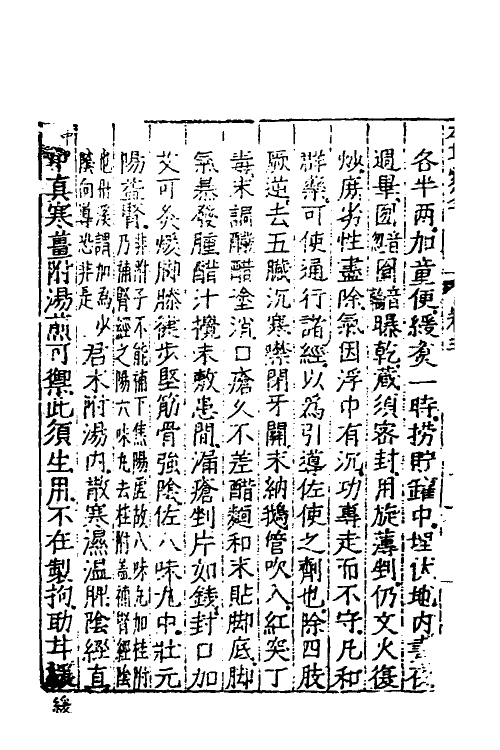 各半两加童便緩煮一時撈貯罐中埋伏地内晝夜
週畢囫圇曝乾藏須密封用旋薄剉仍文火復
炒庶劣性盡除氣因浮中有沉功專走而不守凡和
群藥可使通行諸經以為引導佐使之劑也除四肢
厥逆去五臟沉寒噤閉牙關末納鵝管吹入紅突丁
毒末調釅醋塗消口瘡久不差醋麵和末貼脚底脚
氣暴發腫醋汁攪末敷患間漏瘡剉片如錢封口加
艾可灸煖脚膝健步堅筋骨強陰佐八味丸中壯元
陽益腎非附子不能補下焦陽虛故八味丸加桂附乃補腎經之陽六味丸去桂附蓋補腎經陰
也丹溪謂加為少陰向導恐非是君术附湯内散寒濕温脾陰經直
中真寒薑附湯煎可禦此須生用不在製拘助甘緩
緩